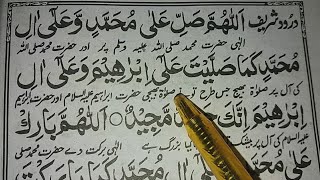 درود شریف اَللّٰهُمَّ صَلِّ عَلٰی مُحَمَّدٍ وَّعَلٰٓی اٰلِ
الٰہی حضرت محمد صلی اللہ علیہ وسلم پر اور حضرت محمد صلی اللہ
مُحَمَّدٍ كَمَا صَلَّيْتَ عَلٰٓی اِبْرٰهِيْمَ وَعَلٰٓی اٰلِ
کی آل پر صلوٰۃ بھیج جس طرح تو نے صلوٰۃ بھیجی حضرت ابراہیم علیہ السلام اور حضرت ابراہیم
اِبْرٰهِيْمَ اِنَّكَ حَمِيْدٌ مَّجِيْدٌ اَللّٰهُمَّ بَارِكْ
علیہ السلام کی آل پر بیشک بزرگ ہے الٰہی برکت دے حضرت محمد صلی
عَلٰی مُحَمَّدٍ كَمَا